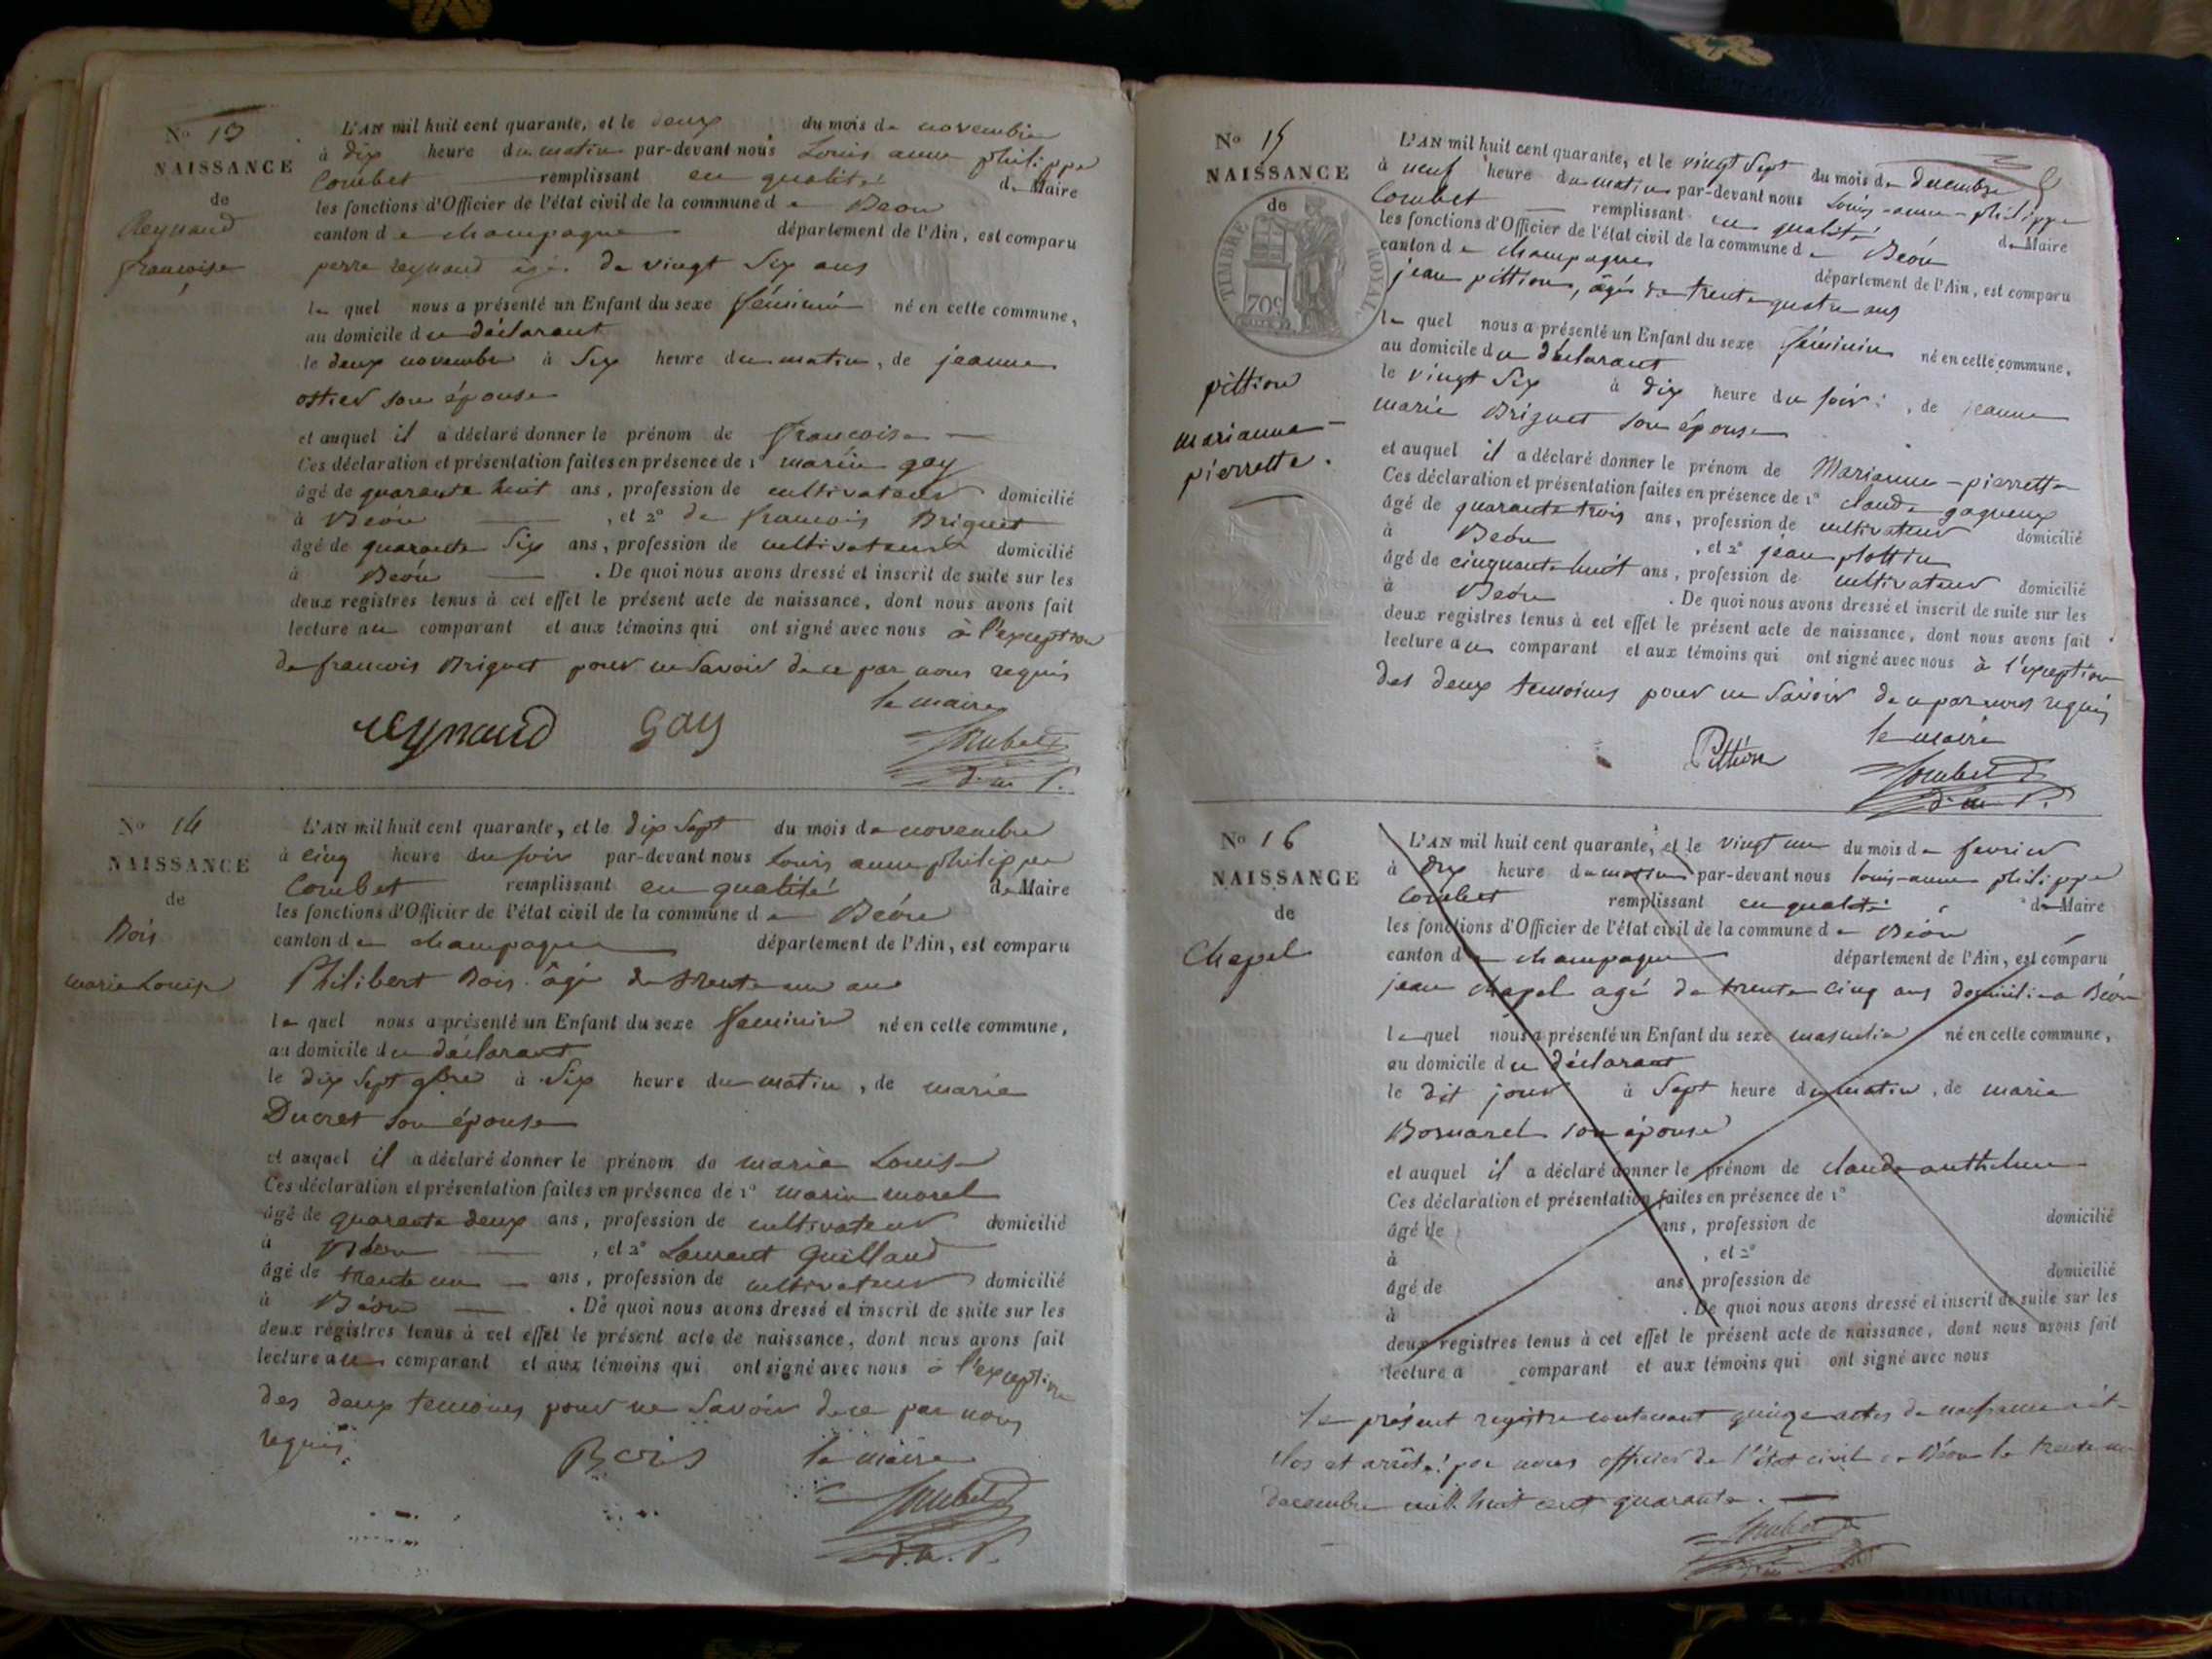 No 13
NAISSANCE
de
Reynaud
francoise
L'AN mil huit cent quarante, et le deux du mois de novembre
à dix heure du matin par-devant nous Louis anne philippe
Combet remplissant en qualité de Maire
les fonctions d'Officier de l'état civil de la commune de Béon
canton de champagne département de l'Ain, est comparu
pierre reynaud agé de vingt Six ans
le quel nous a présenté un Enfant du sexe féminin né en cette commune,
au domicile du déclarant
le deux novembre à Six heure du matin, de jeanne
ostier son épouse
et auquel il a déclaré donner le prénom de francoise
Ces déclaration et présentation faites en présence de 1° marin gay
âgé de quarante huit ans, profession de cultivateur domicilié
à Béon , et 2° de francois Briguet
âgé de quarante Six ans, profession de cultivateur domicilié
à Béon . De quoi nous avons dressé et inscrit de suite sur les
deux registres tenus à cet effet le présent acte de naissance, dont nous avons fait
lecture au comparant et aux témoins qui ont signé avec nous à l'exception
de francois Briguet pour ne Savoir de ce par nous requis
le maire
reynaud gay Combet
d. m. P.
No 14
NAISSANCE
de
Bois
marie Louise
L'AN mil huit cent quarante, et le dix Sept du mois de novembre
à cinq heure du soir par-devant nous Louis anne philippe
Combet remplissant en qualité de Maire
les fonctions d'Officier de l'état civil de la commune de Béon
canton de champagne département de l'Ain, est comparu
Philibert Bois âgé de trente un ans
le quel nous a présenté un Enfant du sexe féminin né en cette commune,
au domicile du déclarant
le dix Sept 9bre à Six heure du matin, de marie
Ducret son épouse
et auquel il a déclaré donner le prénom de marie Louise
Ces déclaration et présentation faites en présence de 1° marin morel
âgé de quarante deux ans, profession de cultivateur domicilié
à Béon , et 2° Laurent Guilland
âgé de trente un ans, profession de cultivateur domicilié
à Béon . De quoi nous avons dressé et inscrit de suite sur les
deux registres tenus à cet effet le présent acte de naissance, dont nous avons fait
lecture au comparant et aux témoins qui ont signé avec nous à l'exception
des deux temoins pour ne Savoir de ce par nous
requis.
Bois le maire
Combet
d. m. P.
No 15
NAISSANCE
de
TIMBRE ROYAL
70c
pittion
marianne-
pierrette.
L'AN mil huit cent quarante, et le vingt Sept du mois de decembre
à neuf heure du matin par-devant nous Louis-anne-philippe
Combet remplissant en qualité de Maire
les fonctions d'Officier de l'état civil de la commune de Béon
canton de champagne département de l'Ain, est comparu
jean pittion, âgé de trente quatre ans
le quel nous a présenté un Enfant du sexe féminin né en cette commune,
au domicile du déclarant
le vingt Six à dix heure du soir, de jeanne
marie Briguet son épouse
et auquel il a déclaré donner le prénom de Marianne-pierrette
Ces déclaration et présentation faites en présence de 1° claude gagneux
âgé de quarante trois ans, profession de cultivateur domicilié
à Béon , et 2° jean plottin
âgé de cinquante huit ans, profession de cultivateur domicilié
à Béon . De quoi nous avons dressé et inscrit de suite sur les
deux registres tenus à cet effet le présent acte de naissance, dont nous avons fait
lecture au comparant et aux témoins qui ont signé avec nous à l'exception
des deux temoins pour ne Savoir de ce par nous requis
le maire
Pittion Combet
d. m. P.
No 16
NAISSANCE
de
Chapel
L'AN mil huit cent quarante, et le vingt un du mois de fevrier
à dix heure du matin par-devant nous louis-anne philippe
Combet remplissant en qualité de Maire
les fonctions d'Officier de l'état civil de la commune de Béon
canton de champagne département de l'Ain, est comparu
jean chapel agé de trente cinq ans domicilié à Béon
le quel nous a présenté un Enfant du sexe masculin né en cette commune,
au domicile du déclarant
le dit jour à Sept heure du matin, de marie
son épouse
et auquel il a déclaré donner le prénom de claude anthelme
Ces déclaration et présentation faites en présence de 1°
âgé de ans, profession de domicilié
à , et 2°
âgé de ans, profession de domicilié
à . De quoi nous avons dressé et inscrit de suite sur les
deux registres tenus à cet effet le présent acte de naissance, dont nous avons fait
lecture a comparant et aux témoins qui ont signé avec nous
le présent registre contenant quinze actes de naissance a été
clos et arrêté par nous officier de l'état civil de Béon le trente un
decembre mil huit cent quarante.
Combet